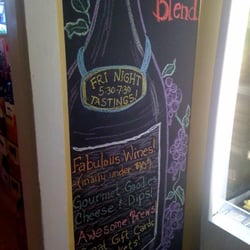 Blend
FRI NIGHT
5:30-7:30
TASTINGS!
Fabulous Wines!
under
Gourmet Goodies
Cheese & Dips!
Awesome Brews!
Gift Cards